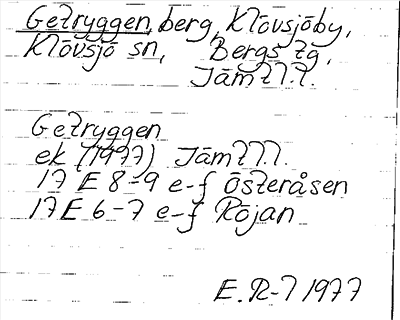 Getryggen, berg, Klövsjöby,
Klövsjö sn, Bergs tg,
Jämtl.
Getryggen
ek (1977) Jämtl.
17 E 8-9 e-f Österåsen
17 E 6-7 e-f Röjan
E. R-l 1977